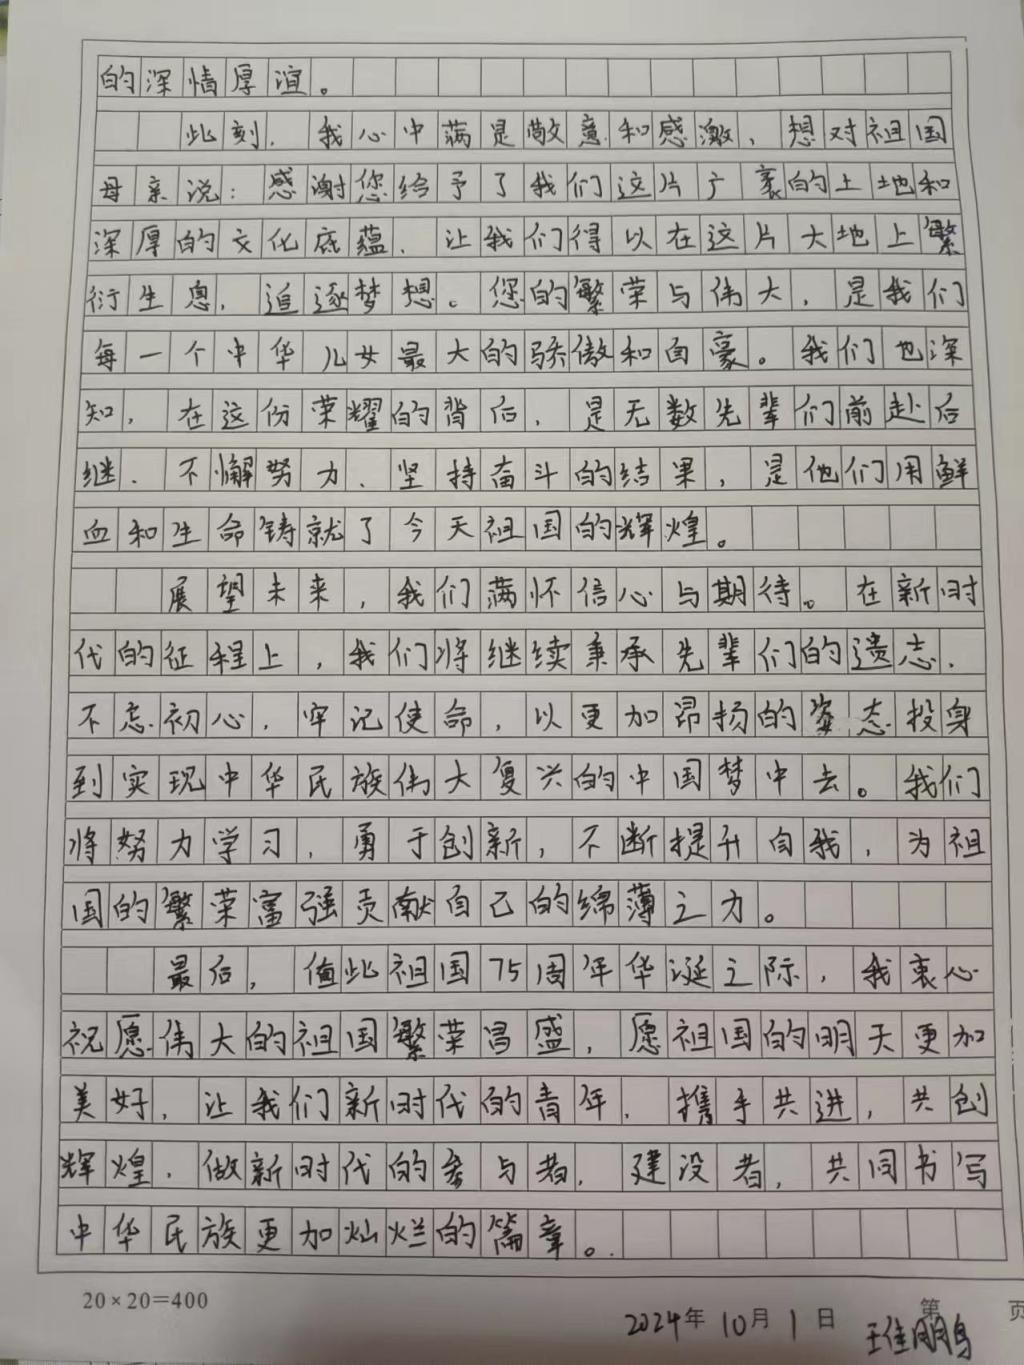 的深情厚谊。
此刻，我心中满是敬意和感激，想对祖国
母亲说：感谢您给予了我们这片广袤的土地和
深厚的文化底蕴，让我们得以在这片大地上繁
衍生息，追逐梦想。您的繁荣与伟大，是我们
每一个中华儿女最大的骄傲和自豪。我们也深
知，在这份荣耀的背后，是无数先辈们前赴后
继、不懈努力、坚持奋斗的结果，是他们用鲜
血和生命铸就了今天祖国的辉煌。
展望未来，我们满怀信心与期待。在新时
代的征程上，我们将继续秉承先辈们的遗志，
不忘初心，牢记使命，以更加昂扬的姿态投身
到实现中华民族伟大复兴的中国梦中去。我们
将努力学习，勇于创新，不断提升自我，为祖
国的繁荣富强贡献自己的绵薄之力。
最后，值此祖国75周年华诞之际，我衷心
祝愿伟大的祖国繁荣昌盛，愿祖国的明天更加
美好，让我们新时代的青年，携手共进，共创
辉煌，做新时代的参与者，建设者，共同书写
中华民族更加灿烂的篇章。
20×20=400
第 页
2024年10月1日 王佳鹏